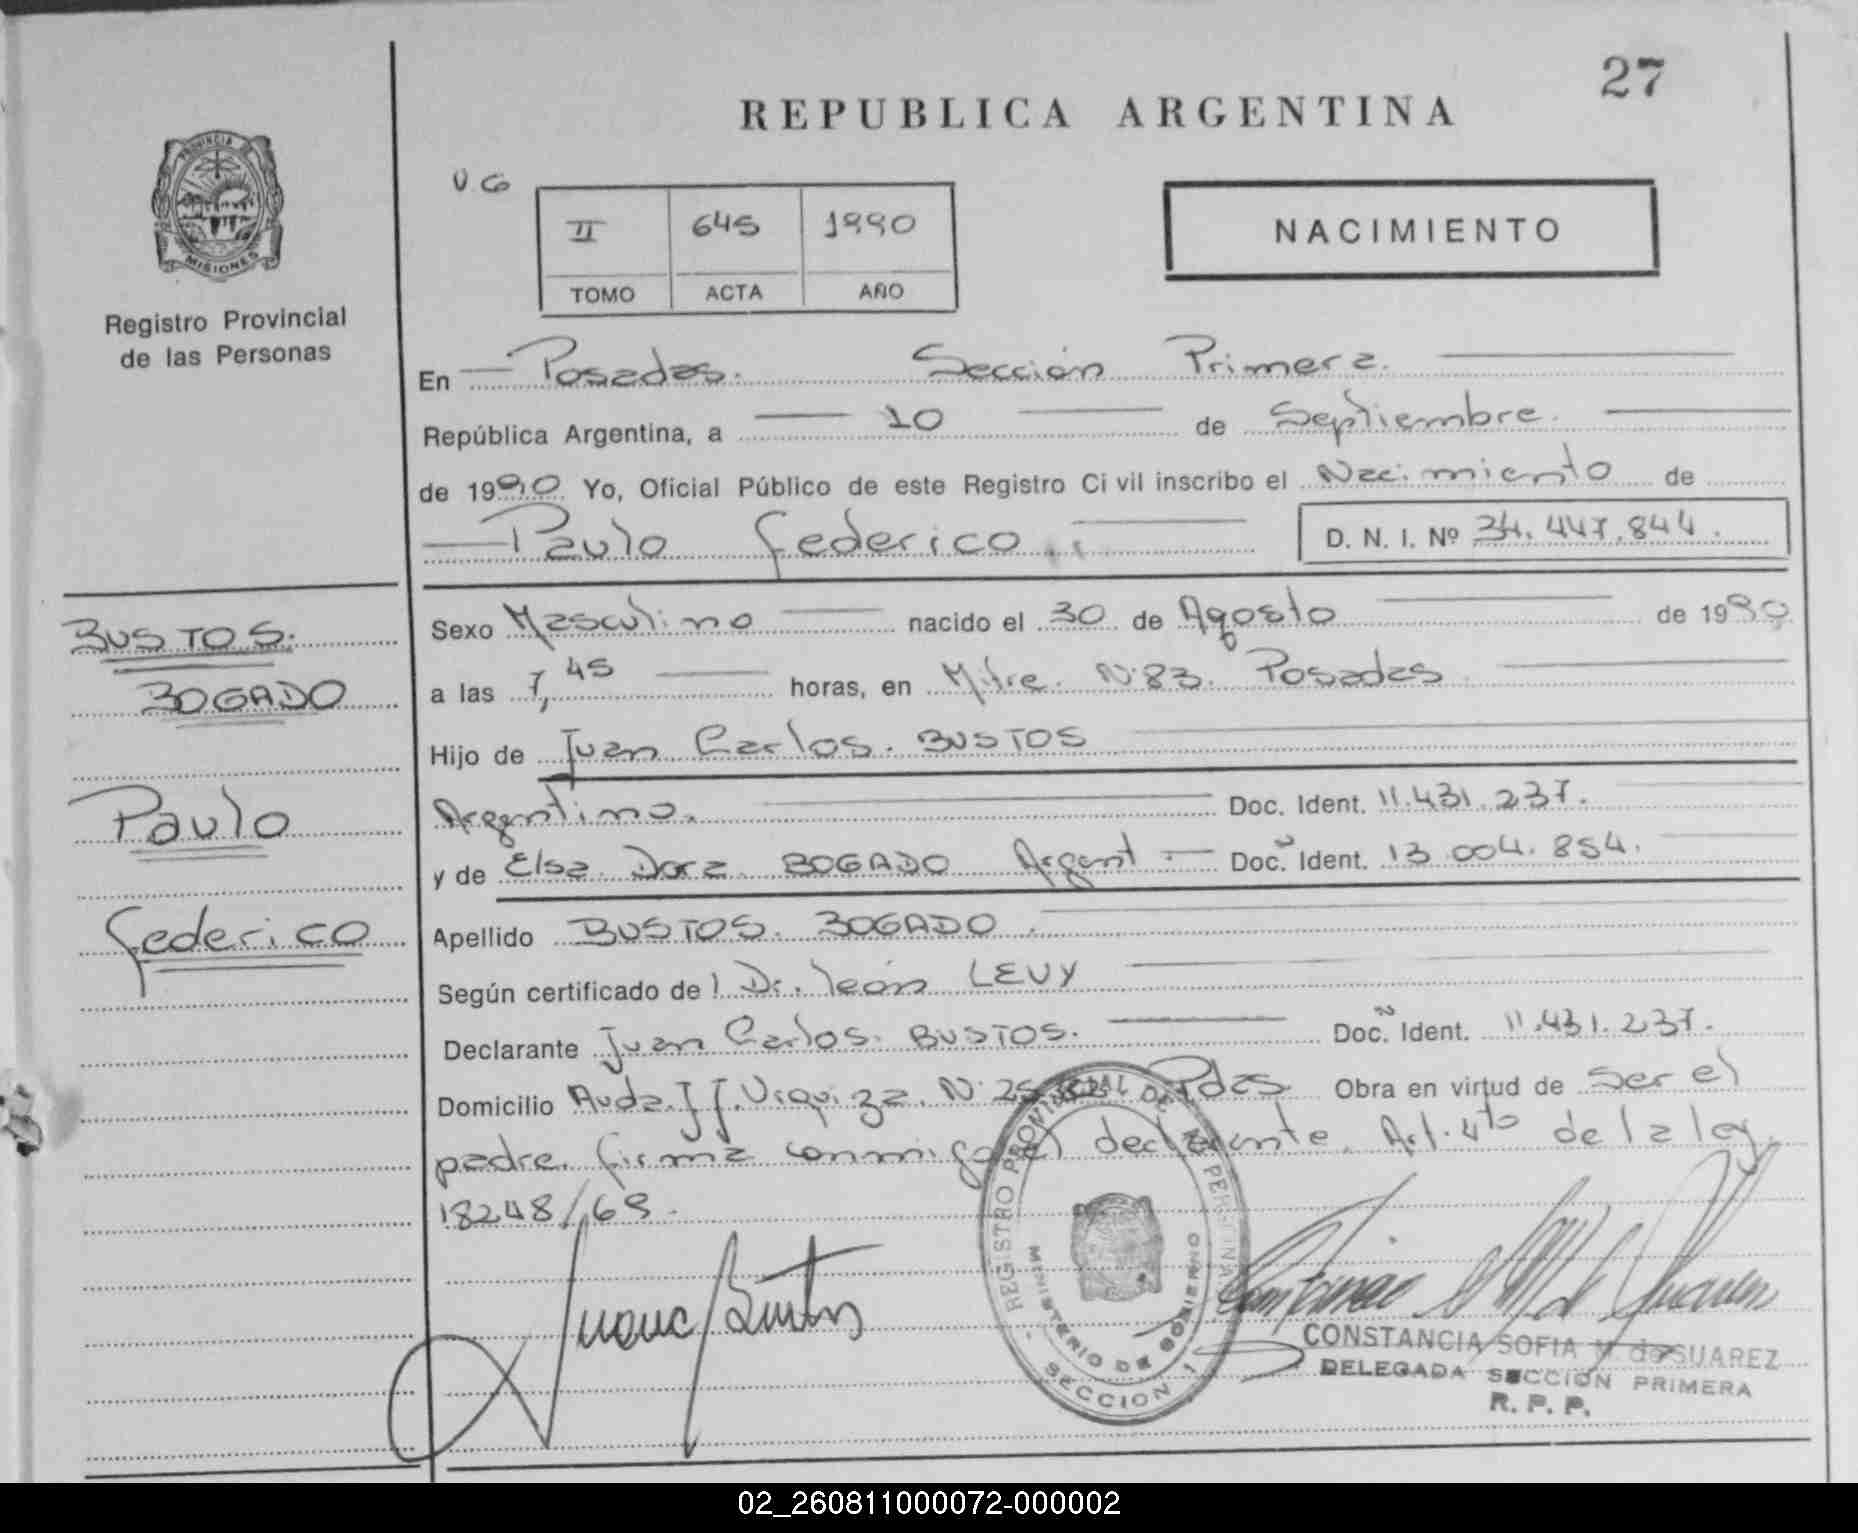 27
REPUBLICA ARGENTINA
PROVINCIA DE
MISIONES
Registro Provincial
de las Personas
V.G
II 645 1990
TOMO ACTA AÑO
NACIMIENTO
En Posadas. Sección Primera.
República Argentina, a 10 de Septiembre.
de 1990 Yo, Oficial Público de este Registro Civil inscribo el Nacimiento de
Paulo Federico
D. N. I. Nº 34.447.844.
BUSTOS.
BOGADO
Paulo
Federico
Sexo Masculino nacido el 30 de Agosto de 1990
a las 7,45 horas, en Mitre. Nº83. Posadas
Hijo de Juan Carlos. BUSTOS
Argentino. Doc. Ident. 11.431.237.
y de Elsa Dora BOGADO Argent Doc. Ident. 13.004.854.
Apellido BUSTOS. BOGADO
Según certificado de l Dr. león LEVY
Declarante Juan Carlos. BUSTOS. Doc. Ident. 11.431.237.
Domicilio Avda. J J. Urquiza. Nº Pdas. Obra en virtud de Ser el
padre. firma conmigo el declarante. Art. 4to de la ley
18248/69.
Juan C Bustos
REGISTRO PROVINCIAL DE
MINISTERIO DE GOBIERNO
SECCION 1
CONSTANCIA SOFIA M. de SUAREZ
DELEGADA SECCION PRIMERA
R. P. P.
02_260811000072-000002